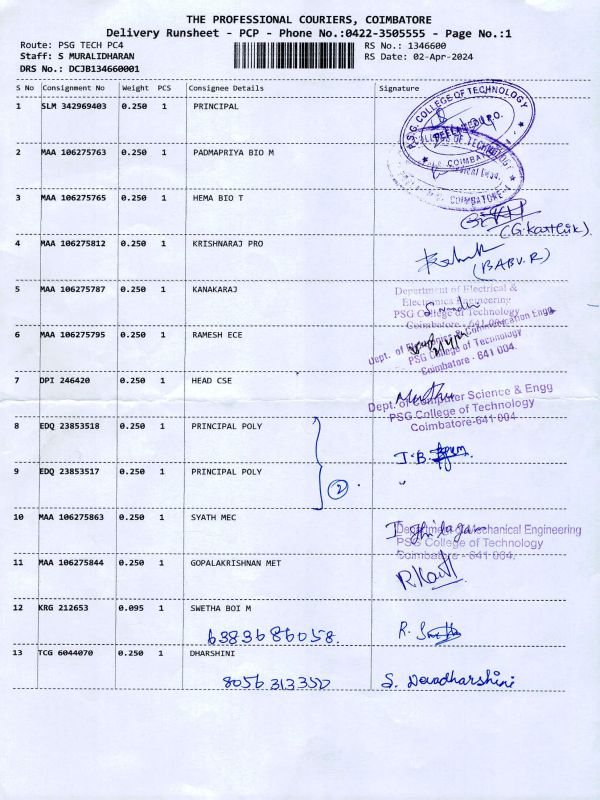 THE PROFESSIONAL COURIERS, COIMBATORE
Delivery Runsheet - PCP - Phone No.:0422-3505555 - Page No.:1
Route: PSG TECH PC4 RS No.: 1346600
Staff: S MURALIDHARAN RS Date: 02-Apr-2024
DRS No.: DCJB134660001
S No Consignment No Weight PCS Consignee Details Signature
1 SLM 342969403 0.250 1 PRINCIPAL
PSG COLLEGE OF TECHNOLOGY
PEELAMEDU P.O.
COIMBATORE
2 MAA 106275763 0.250 1 PADMAPRIYA BIO M
COLLEGE OF TECHNOLOGY
COIMBATORE
3 MAA 106275765 0.250 1 HEMA BIO T
(G.Karthik)
4 MAA 106275812 0.250 1 KRISHNARAJ PRO
(BABU.R)
5 MAA 106275787 0.250 1 KANAKARAJ
Department of Electrical &
Electronics Engineering
PSG College of Technology
Coimbatore - 641 004
6 MAA 106275795 0.250 1 RAMESH ECE
Dept. of Electronics & Communication Engg
PSG College of Technology
Coimbatore - 641 004.
7 DPI 246420 0.250 1 HEAD CSE
Dept. of Computer Science & Engg
PSG College of Technology
Coimbatore-641 004
8 EDQ 23853518 0.250 1 PRINCIPAL POLY
J.B.
9 EDQ 23853517 0.250 1 PRINCIPAL POLY
2 "
10 MAA 106275863 0.250 1 SYATH MEC
Department of Mechanical Engineering
PSG College of Technology
Coimbatore - 641 004.
11 MAA 106275844 0.250 1 GOPALAKRISHNAN MET
12 KRG 212653 0.095 1 SWETHA BOI M
6383686058.
13 TCG 6044070 0.250 1 DHARSHINI
8056313350 S. Devadharshini